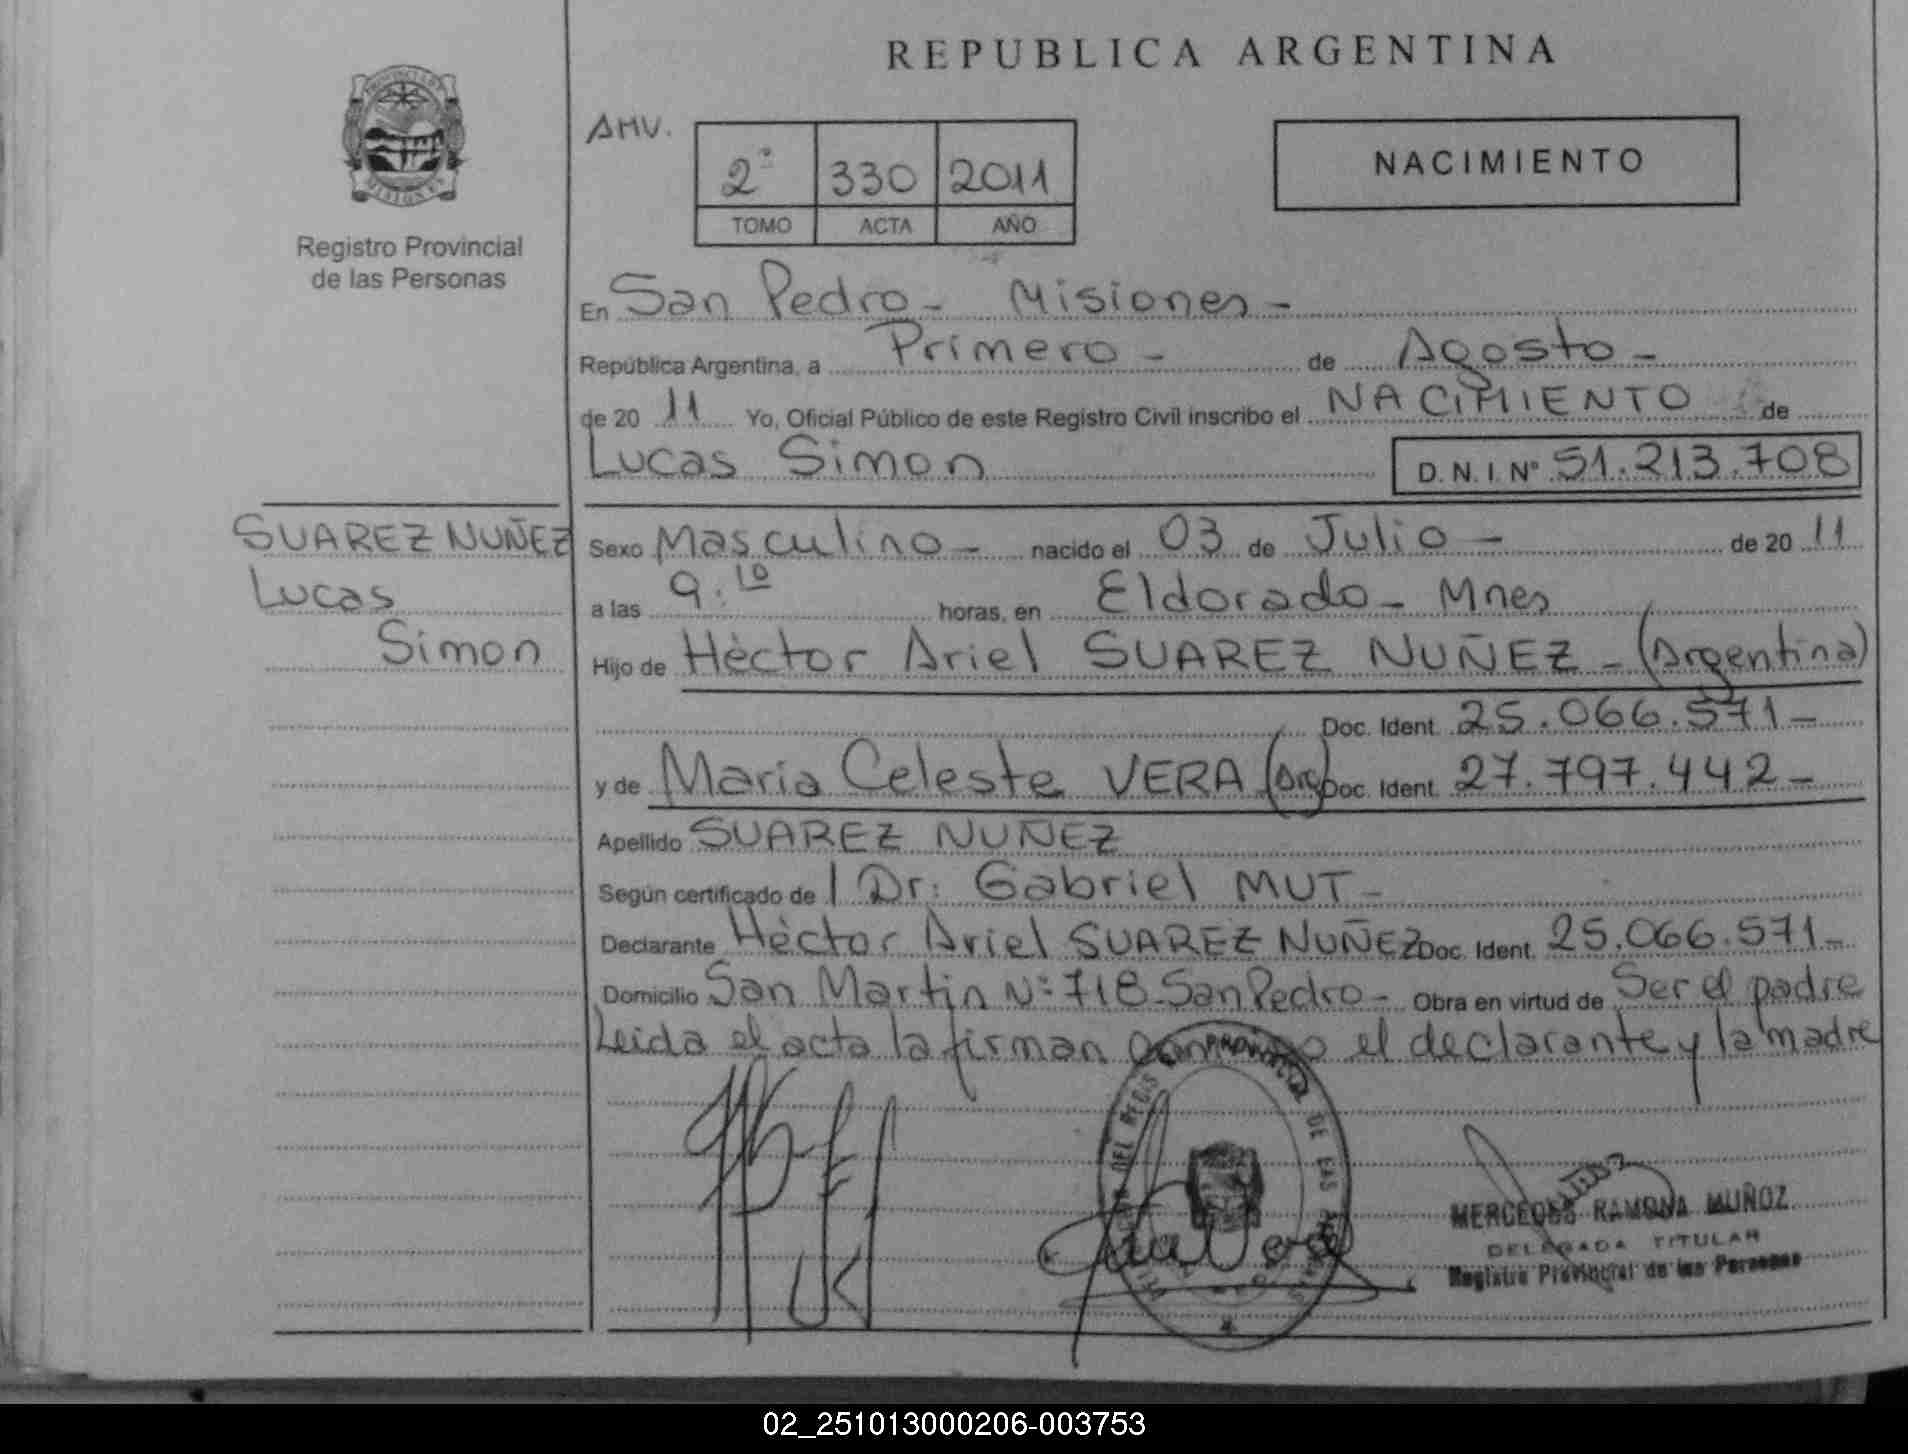 REPUBLICA ARGENTINA
PROVINCIA DE MISIONES
Registro Provincial
de las Personas
AMV.
2° 330 2011
TOMO ACTA AÑO
NACIMIENTO
En San Pedro - Misiones -
República Argentina, a Primero - de Agosto -
de 20 11 Yo, Oficial Público de este Registro Civil inscribo el NACIMIENTO de
Lucas Simon D.N.I. N° 51.213.708
SUAREZ NUÑEZ
Lucas
Simon
Sexo Masculino - nacido el 03 de Julio - de 20 11
a las 9:10 horas, en Eldorado - Mnes
Hijo de Héctor Ariel SUAREZ NUÑEZ - (Argentina)
Doc. Ident. 25.066.571 -
y de Maria Celeste VERA (Arg) Doc. Ident. 27.797.442 -
Apellido SUAREZ NUÑEZ
Según certificado de l Dr: Gabriel MUT -
Declarante Héctor Ariel SUAREZ NUÑEZ Doc. Ident. 25.066.571 -
Domicilio San Martin N° 718 - San Pedro - Obra en virtud de Ser el padre
Leida el acta la firman el declarante y la madre
MERCEDES RAMONA MUÑOZ
DELEGADA TITULAR
Registro Provincial de las Personas
02_251013000206-003753